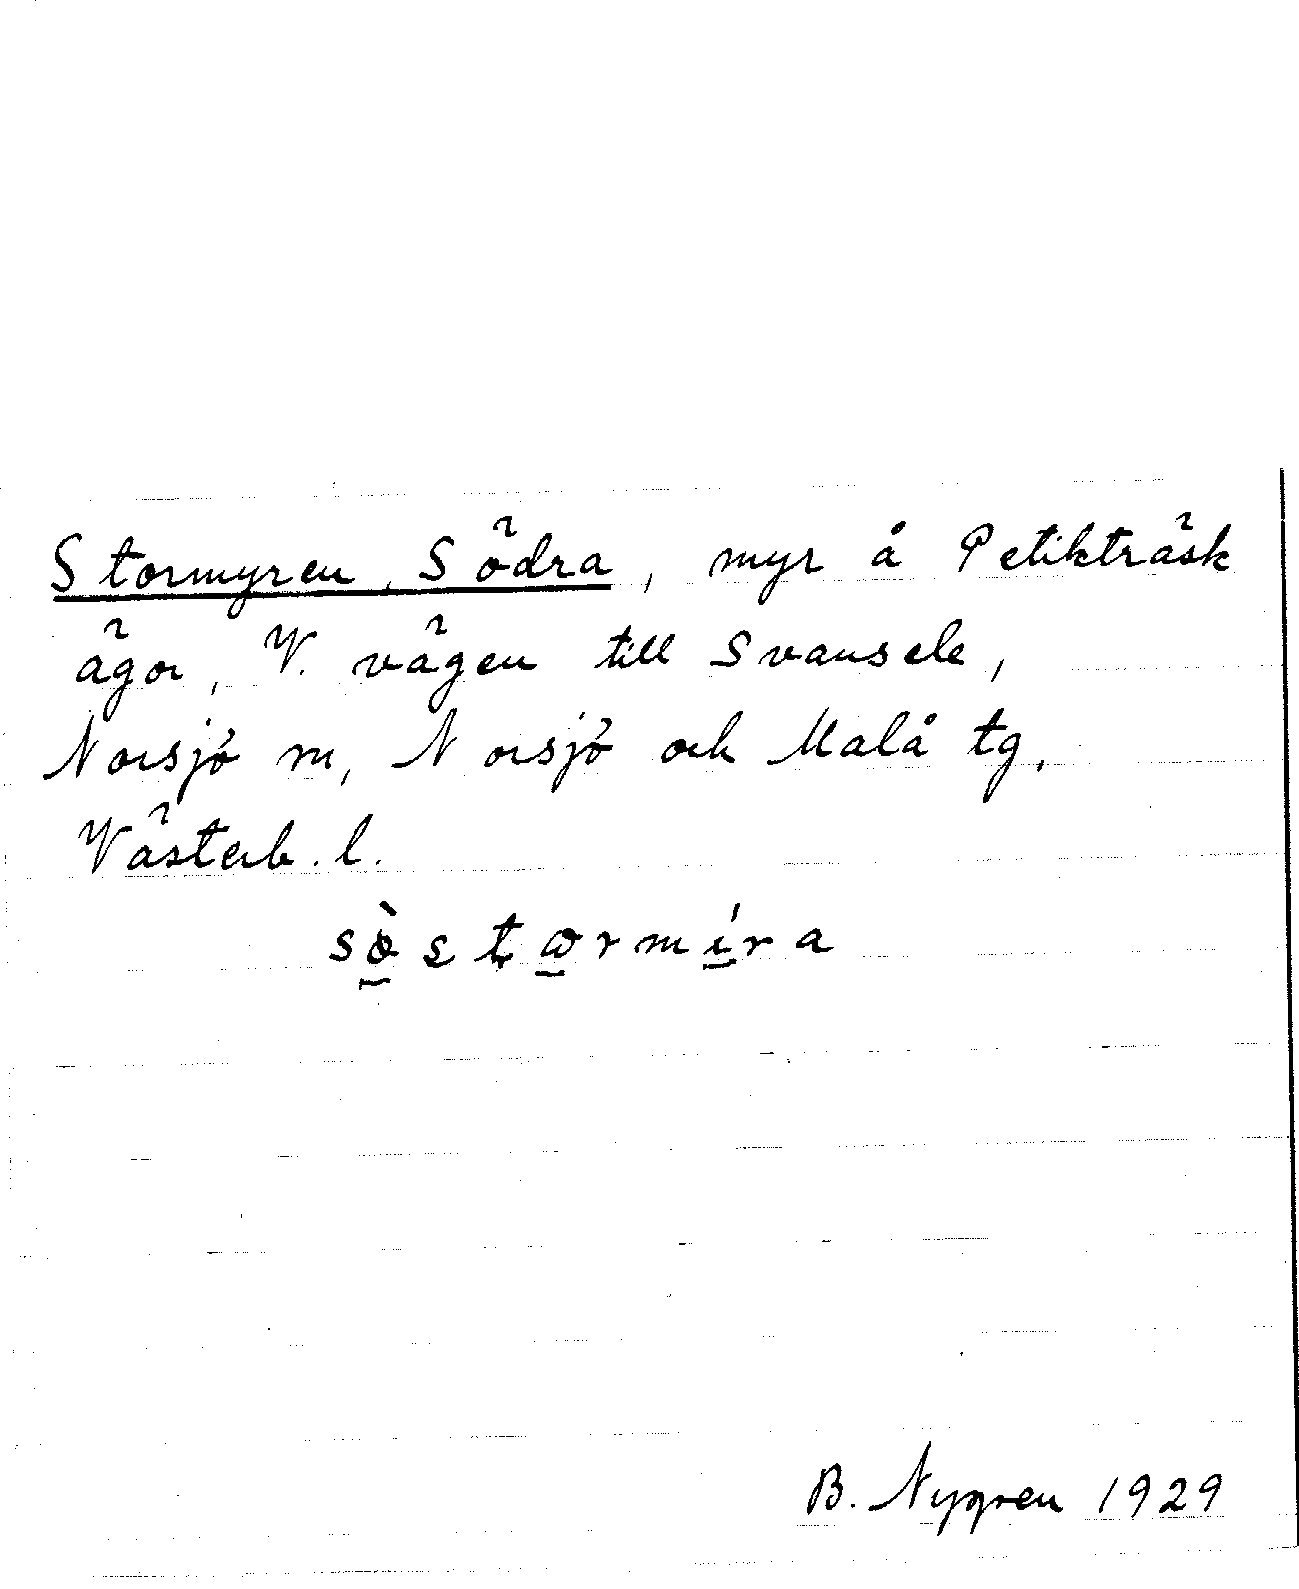 Stormyren, Södra, myr å Petikträsk
ägor, V. vägen till Svansele,
Norsjö sn, Norsjö och Malå tg,
Västerb. l.
sò̠stω̠rmí̠ra
B. Nygren 1929